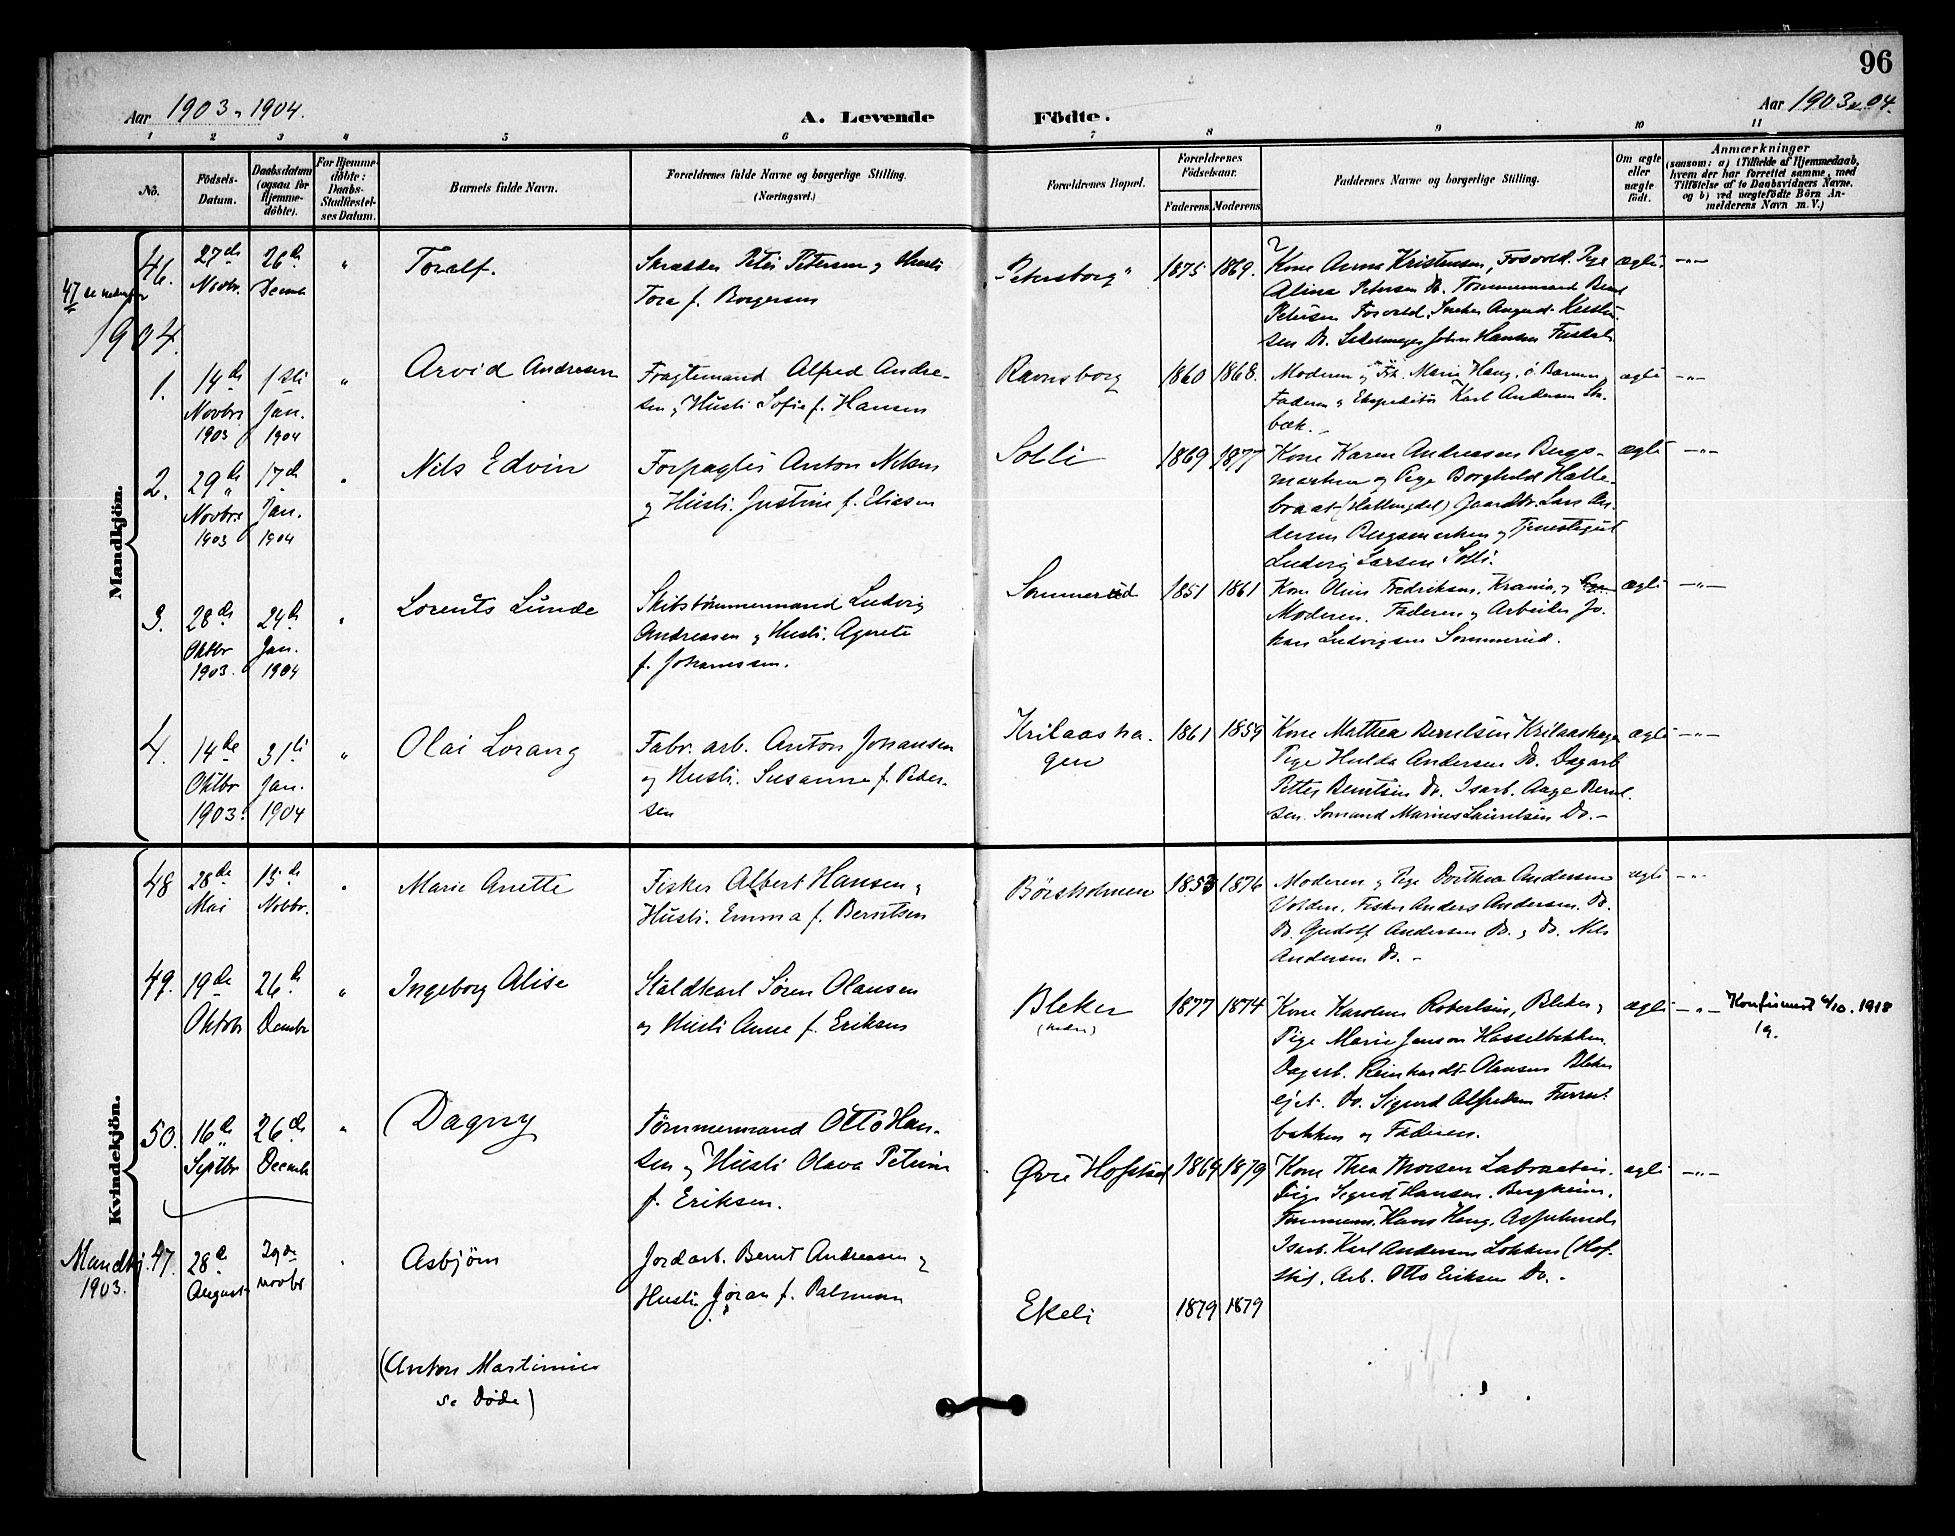 96
Aar 1903 & 1904.
A. Levende Födte.
Aar 1903 & 04.
1 2 3 4 5 6 7 8 9 10 11
No.
Födsels-Datum.
Daabsdatum (ogsaa for Hjemme-döbte).
For Hjemme-döbte: Daabs-Stadfæstel-ses Datum.
Barnets fulde Navn.
Forældrenes fulde Navne og borgerlige Stilling.
(Næringsvei.)
Forældrenes Bopæl.
Forældrenes Födselsaar.
Faderens. Moderens.
Faddernes Navne og borgerlige Stilling.
Om ægte eller uægte födt.
Anmærkninger
(saasom: a) i Tilfælde af Hjemmedaab,
hvem der har forrettet samme, med
Tilföielse af to Daabsvidners Navne,
og b) ved uægtefödte Börn An-
melderens Navn m. V.)
Mandkjön.
46. 27de Novbr. 26de Decemb. " Toralf.
Skrædder Peter Petersen og Hustr.
Tora f. Borgersen
"Petersborg" 1875 1869.
Kone Anna Kristensen, Fosvold. Pige
Alina Petersen Do. Tømmermand Bernt
Petersen Fosvold. Snekker August Kristen-
sen Do. Johan Hansen
ægte. -"-
47 se nedenfor
1904.
1. 14de Novbr. 1903 1ste Jan. 1904 " Arvid Andresen
Fragtemand Alfred Andre-
sen og Hustr. Sofie f. Hansen
Ravnsborg 1860 1868.
Moderen og Frk. Marie Haug,
Faderen og Ekspeditør Karl Andersen
bæk.
ægte -"-
2. 29de Novbr. 1903 17de Jan. 1904 " Nils Edvin
Forpagter Anton Nilsen
og Hustr. Justine f. Eliasen
Solli 1869 1877
Kone Karen Andreasen Bergs-
marken og Pige Borghild Halle-
braat (Hallingdal) Gaardbr. Lars An-
dersen Bergsmarken og Tjenestegut
Ludvig Larsen Solli.
ægte -"-
3. 28de Oktbr 1903. 24de Jan. 1904 " Lorents Lunde
Skibstømmermand Ludvig
Andreassen og Hustr. Agnete
f. Johannessen.
Sommerud 1851 1861
Kone Oline Fredriksen, Krania, og
Moderen. Faderen og Arbeider Jo-
han Ludvigsen Sommerud.
ægte -"-
4. 14de Oktbr 1903. 31te Jan. 1904 " Olai Lorang
Fabr. arb. Anton Johansen
og Hustr. Susanne f. Peder-
sen
Krilaasha-
gen
1861 1859
Kone Mathea Berntsen Krilaashagen
Pige Hulda Andersen Do. Dagarb
Petter Berntsen Do. Isarb. Aage Bernt-
sen. Sömand Marius Lauritsen Do. -
ægte -"-
Kvindekjön.
48 28de Mai 15de Novbr. " Marie Anette
Fisker Albert Hansen og
Hustr. Emma f. Berntsen
Börsholmen 1853 1876
Moderen og Pige Dorthea Andersen
Volden. Fisker Anders Andersen Do.
Do. Gudolf Andersen Do. og Do. Nils
Andersen Do. -
ægte -"-
49. 19de Oktbr 26de Dcembr " Ingeborg Alise
Staldkarl Søren Olausen
og Hustr. Anne f. Eriksen
Bleker
(nedre)
1877 1874
Kone Karoline Robertsen, Bleker og
Pige Marie Jenson Hasselbakken.
Dagarb. Reinhardt Olausen Bleker
ejet. Do. Sigurd Alfredsen Furru-
bakken og Faderen.
ægte -"- Konfirmert 6/10. 1918
19.
50. 16de Septbr 26de Decemb " Dagny
Tømmermand Otto Han-
sen og Hustr. Olava Petrine
f. Eriksen.
Øvre Hofstad 1869 1879
Kone Thea Thorsen Labraaten.
Pige Sigrid Hansen. Bergheim.
Tømmerm. Hans Haug, Aspelund
Isarb. Karl Andersen Løkken (Hof-
stad, Arb. Otto Eriksen Do. -
ægte -"-
Mandkj. 47.
1903.
28de August 29de novbr " Asbjørn
Jordarb. Bernt Andreasen og
Hustr. Jøran f. Palman
Ekeli 1879 1879
(Anton Martinius
se Døde)